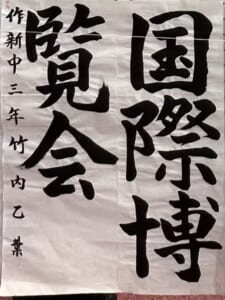 国際博
覧会
作新中三年竹内乙葉